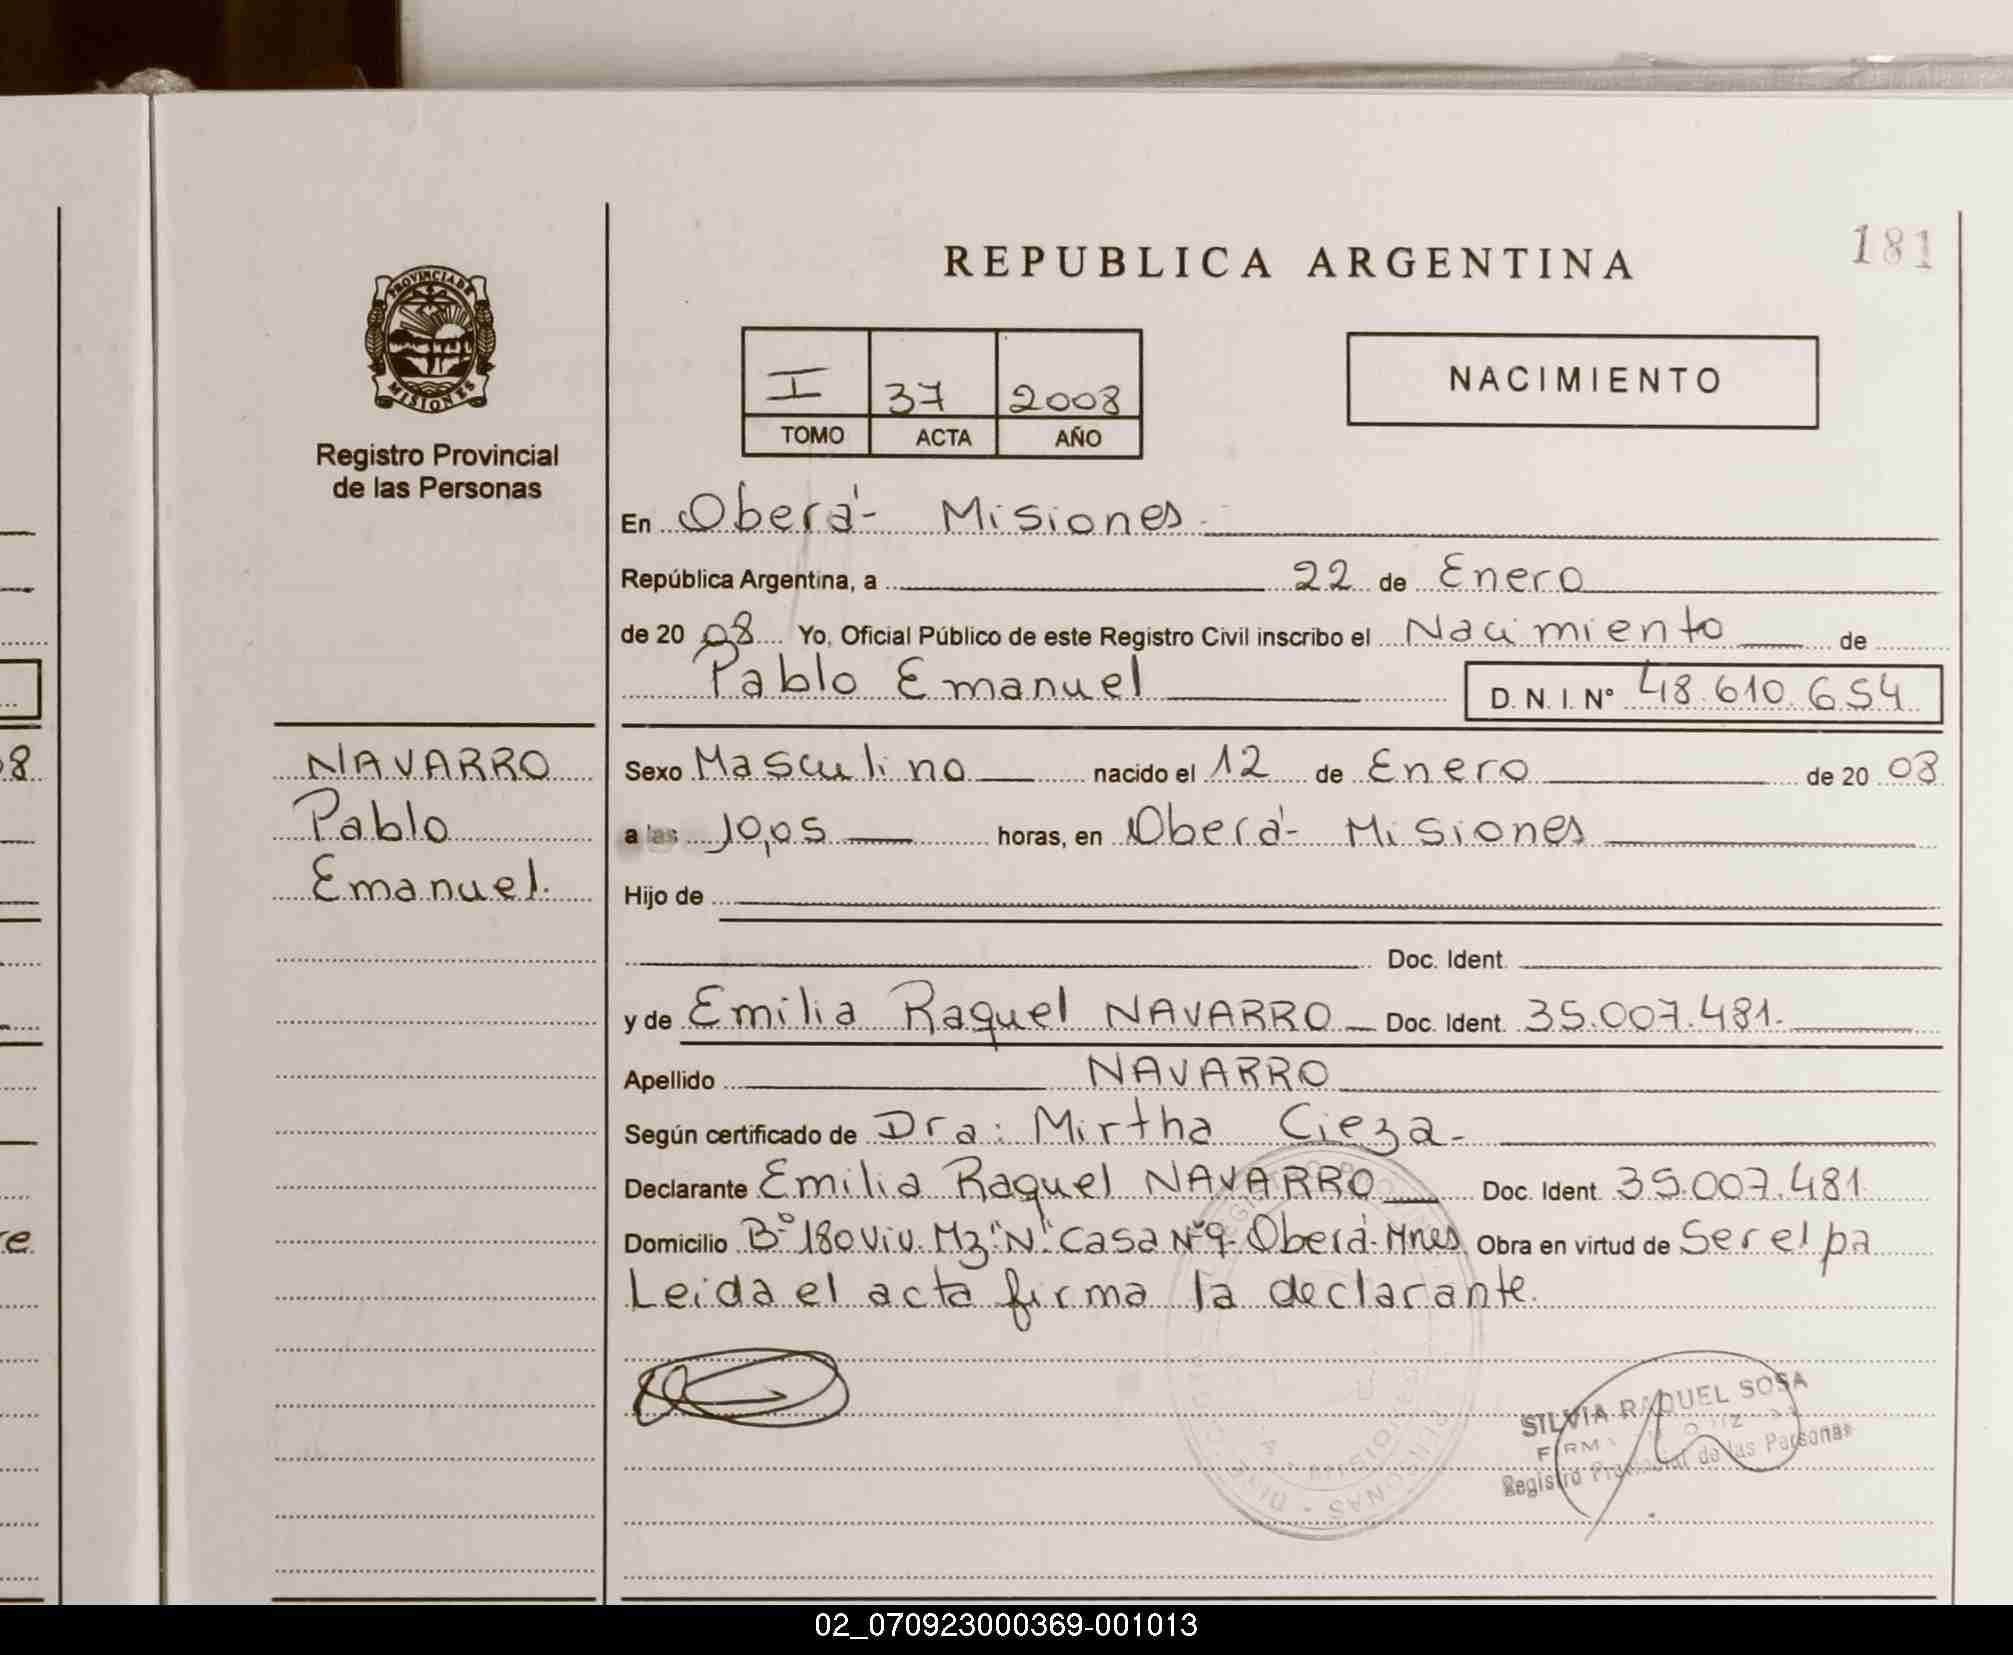 REPUBLICA ARGENTINA
181
PROVINCIA DE
MISIONES
Registro Provincial
de las Personas
I 37 2008
TOMO ACTA AÑO
NACIMIENTO
En Oberá - Misiones
República Argentina, a 22 de Enero
de 20 08 Yo, Oficial Público de este Registro Civil inscribo el Nacimiento de
Pablo Emanuel D. N. I. N° 48.610.654
NAVARRO
Pablo
Emanuel.
Sexo Masculino nacido el 12 de Enero de 20 08
a las 10,05 horas, en Oberá - Misiones
Hijo de
Doc. Ident.
y de Emilia Raquel NAVARRO Doc. Ident. 35.007.481.
Apellido NAVARRO
Según certificado de Dra: Mirtha Cieza -
Declarante Emilia Raquel NAVARRO Doc. Ident. 35.007.481
Domicilio B° 180 Viv. Mz "N" Casa N° 9 - Oberá - Mnes Obra en virtud de Ser el pa
Leida el acta firma la declarante.
SILVIA RAQUEL SOSA
Registro Provincial de las Personas
8
e
02_070923000369-001013